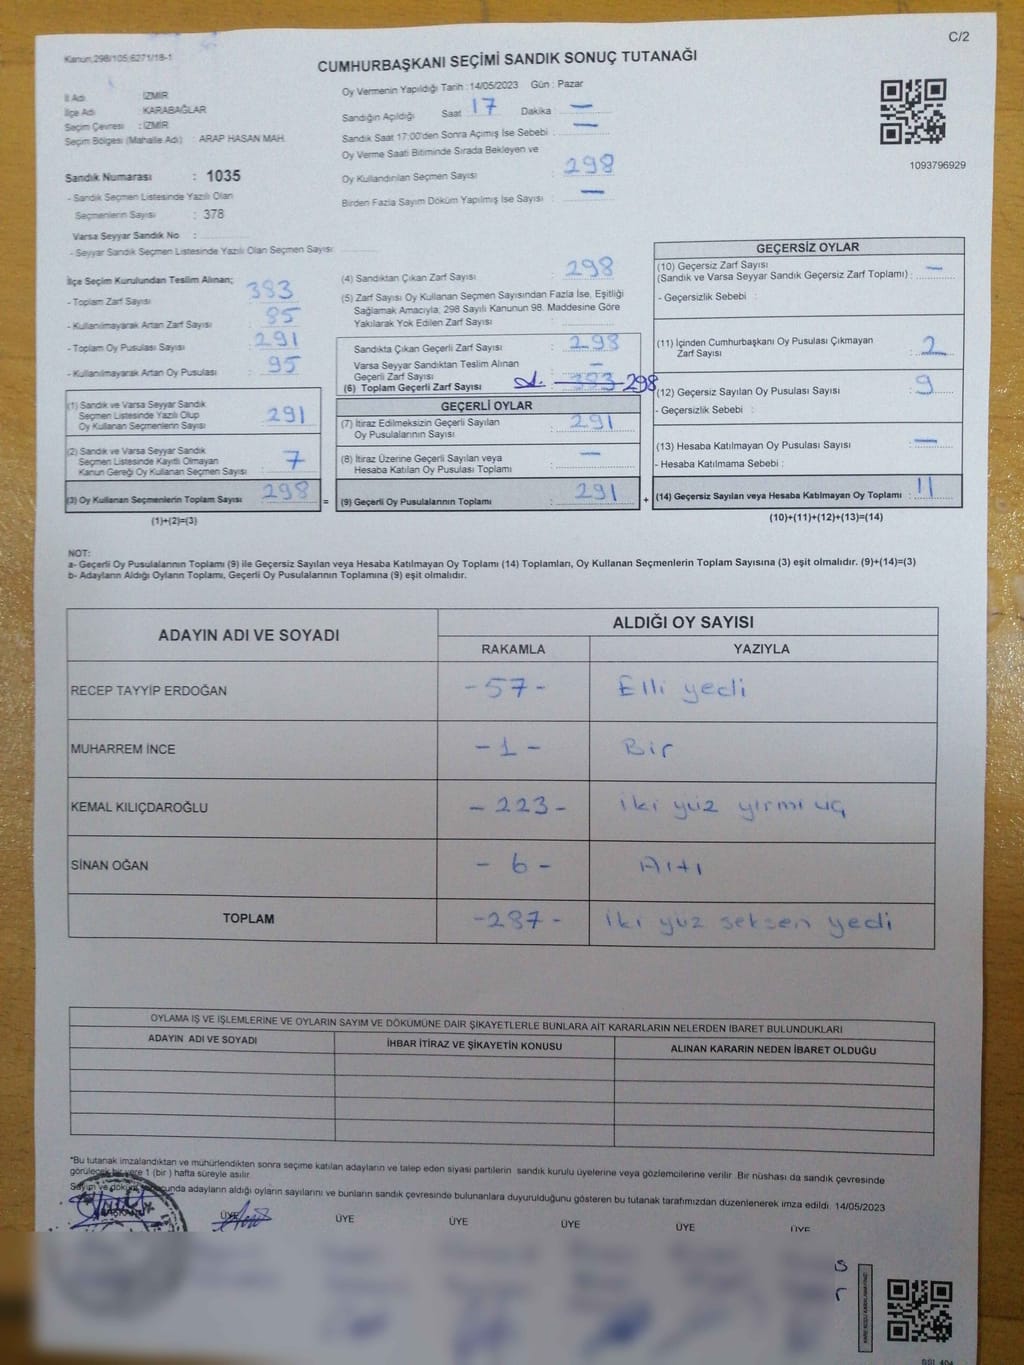 C/2
Kanun:298/105;6271/18-1
CUMHURBAŞKANI SEÇİMİ SANDIK SONUÇ TUTANAĞI
İl Adı : İZMİR
İlçe Adı : KARABAĞLAR
Seçim Çevresi : İZMİR
Seçim Bölgesi (Mahalle Adı) : ARAP HASAN MAH.
Sandık Numarası : 1035
- Sandık Seçmen Listesinde Yazılı Olan
Seçmenlerin Sayısı : 378
Varsa Seyyar Sandık No :
- Seyyar Sandık Seçmen Listesinde Yazılı Olan Seçmen Sayısı:
Oy Vermenin Yapıldığı Tarih :14/05/2023 Gün : Pazar
Sandığın Açıldığı Saat 17 Dakika : —
Sandık Saat 17:00'den Sonra Açımış İse Sebebi : —
Oy Verme Saati Bitiminde Sırada Bekleyen ve
Oy Kullandırılan Seçmen Sayısı : 298
Birden Fazla Sayım Döküm Yapılmış İse Sayısı : —
1093796929
İlçe Seçim Kurulundan Teslim Alınan;
- Toplam Zarf Sayısı : 383
- Kullanılmayarak Artan Zarf Sayısı : 85
- Toplam Oy Pusulası Sayısı : 291
- Kullanılmayarak Artan Oy Pusulası : 95
(1) Sandık ve Varsa Seyyar Sandık
Seçmen Listesinde Yazılı Olup
Oy Kullanan Seçmenlerin Sayısı : 291
(2) Sandık ve Varsa Seyyar Sandık
Seçmen Listesinde Kayıtlı Olmayan
Kanun Gereği Oy Kullanan Seçmen Sayısı : 7
(3) Oy Kullanan Seçmenlerin Toplam Sayısı : 298
(1)+(2)=(3)
(4) Sandıktan Çıkan Zarf Sayısı : 298
(5) Zarf Sayısı Oy Kullanan Seçmen Sayısından Fazla İse, Eşitliği
Sağlamak Amacıyla, 298 Sayılı Kanunun 98. Maddesine Göre
Yakılarak Yok Edilen Zarf Sayısı :
Sandıkta Çıkan Geçerli Zarf Sayısı : 298
Varsa Seyyar Sandıktan Teslim Alınan
Geçerli Zarf Sayısı : —
(6) Toplam Geçerli Zarf Sayısı : 383 298
GEÇERLİ OYLAR
(7) İtiraz Edilmeksizin Geçerli Sayılan
Oy Pusulalarının Sayısı : 291
(8) İtiraz Üzerine Geçerli Sayılan veya
Hesaba Katılan Oy Pusulası Toplamı : —
= (9) Geçerli Oy Pusulalarının Toplamı : 291
GEÇERSİZ OYLAR
(10) Geçersiz Zarf Sayısı
(Sandık ve Varsa Seyyar Sandık Geçersiz Zarf Toplamı) : —
- Geçersizlik Sebebi :
(11) İçinden Cumhurbaşkanı Oy Pusulası Çıkmayan
Zarf Sayısı : 2
(12) Geçersiz Sayılan Oy Pusulası Sayısı : 9
- Geçersizlik Sebebi :
(13) Hesaba Katılmayan Oy Pusulası Sayısı : —
- Hesaba Katılmama Sebebi :
+ (14) Geçersiz Sayılan veya Hesaba Katılmayan Oy Toplamı : 11
(10)+(11)+(12)+(13)=(14)
NOT:
a- Geçerli Oy Pusulalarının Toplamı (9) ile Geçersiz Sayılan veya Hesaba Katılmayan Oy Toplamı (14) Toplamları, Oy Kullanan Seçmenlerin Toplam Sayısına (3) eşit olmalıdır. (9)+(14)=(3)
b- Adayların Aldığı Oyların Toplamı, Geçerli Oy Pusulalarının Toplamına (9) eşit olmalıdır.
ADAYIN ADI VE SOYADI
ALDIĞI OY SAYISI
RAKAMLA YAZIYLA
RECEP TAYYİP ERDOĞAN -57- Elli yedi
MUHARREM İNCE -1- Bir
KEMAL KILIÇDAROĞLU -223- iki yüz yirmi üç
SİNAN OĞAN -6- Altı
TOPLAM -287- iki yüz seksen yedi
OYLAMA İŞ VE İŞLEMLERİNE VE OYLARIN SAYIM VE DÖKÜMÜNE DAİR ŞİKAYETLERLE BUNLARA AİT KARARLARIN NELERDEN İBARET BULUNDUKLARI
ADAYIN ADI VE SOYADI İHBAR İTİRAZ VE ŞİKAYETİN KONUSU ALINAN KARARIN NEDEN İBARET OLDUĞU
*Bu tutanak imzalandıktan ve mühürlendikten sonra seçime katılan adayların ve talep eden siyasi partilerin sandık kurulu üyelerine veya gözlemcilerine verilir. Bir nüshası da sandık çevresinde
görülecek bir yere 1 (bir ) hafta süreyle asılır.
Sayım ve döküm sonucunda adayların aldığı oyların sayılarını ve bunların sandık çevresinde bulunanlara duyurulduğunu gösteren bu tutanak tarafımızdan düzenlenerek imza edildi. 14/05/2023
BAŞKAN ÜYE ÜYE ÜYE ÜYE ÜYE ÜYE